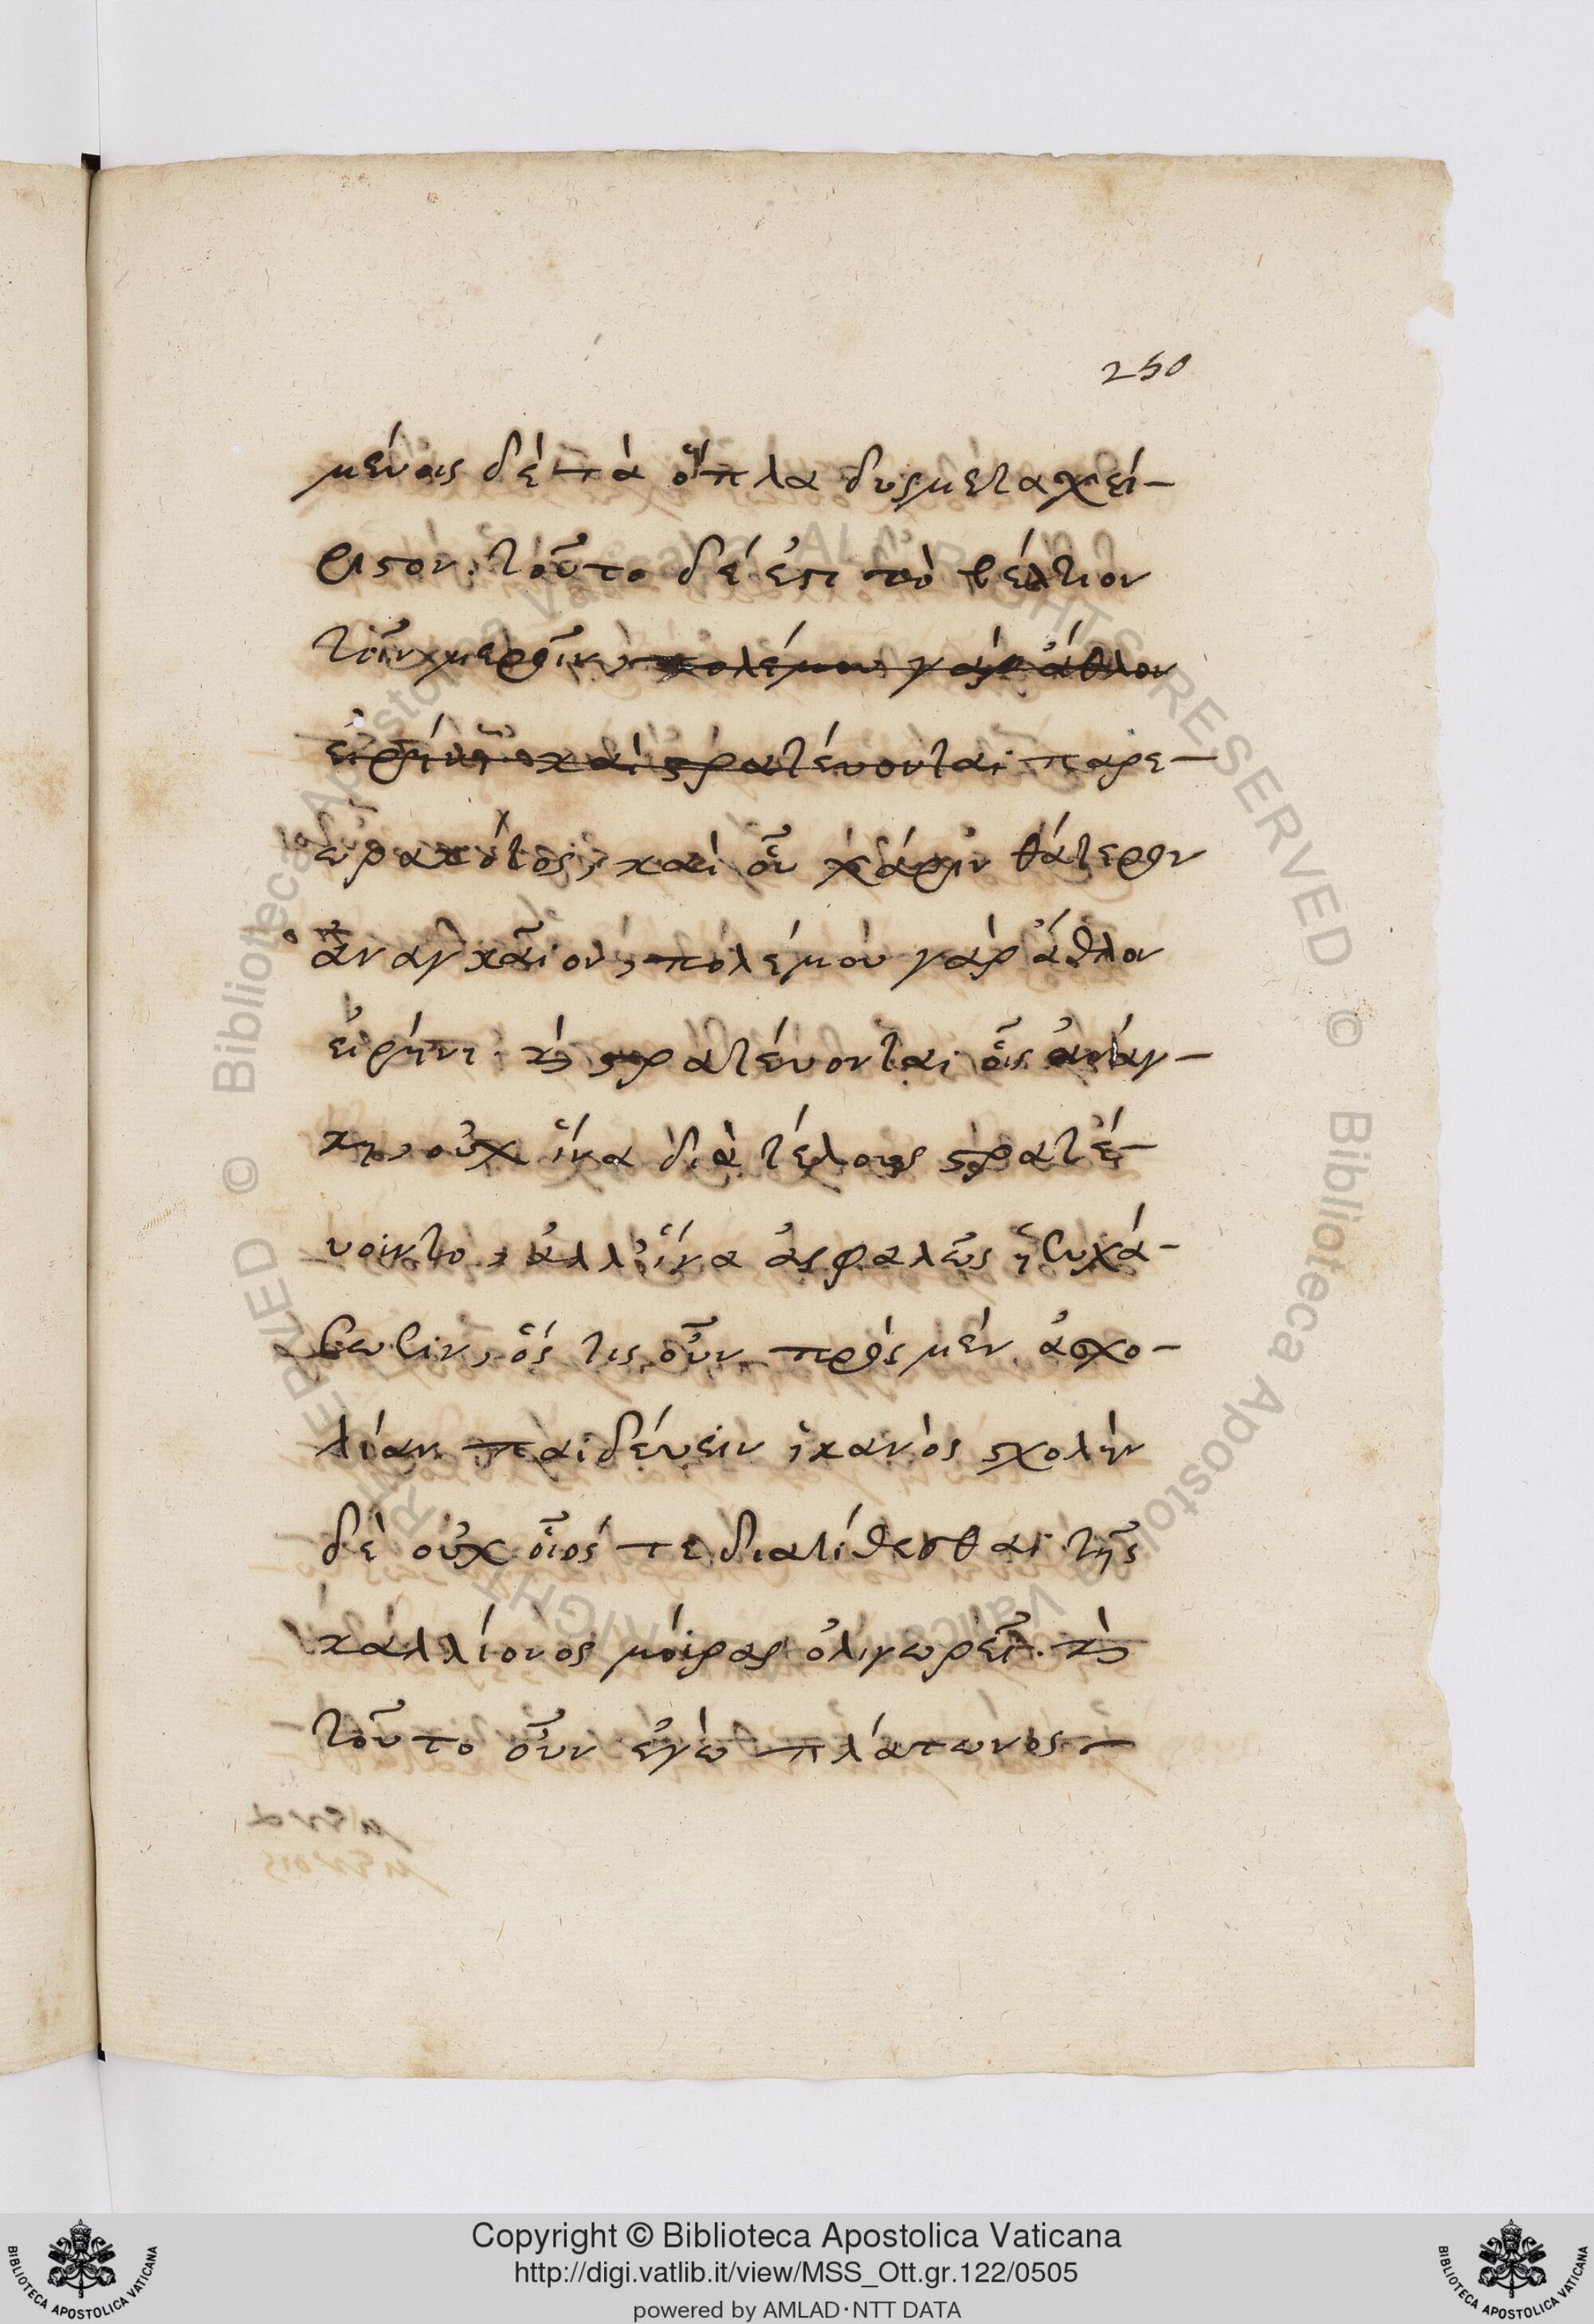 250
μένοις δὲ τὰ ὅπλα δυσμεταχεί-
ριστον. τοῦτο δὲ ἐπὶ τὸ βέλτιον
τοῖν μεροῖν πολέμου γὰρ ἆθλον
εἰρήνη καὶ στρατεύονται παρε-
ωρακότος, καὶ οὗ χάριν θάτερον
ἀναγκαῖον, πολέμου γὰρ ἄθλον
εἰρήνη. καὶ στρατεύονται οἷς ἀνάγ-
κη, οὐχ ἵνα διὰ τέλους στρατέ-
υοιντο, ἀλλ' ἵνα ἀσφαλῶς ἡσυχά-
σωσιν, ὅς τις οὖν πρὸς μὲν ἀσχο-
λίαν παιδέυειν ἱκανὸς σχολὴν
δὲ οὐχ οἷός τε διατίθεσθαι τῆς
καλλίονος μοίρας ὀλιγωρεῖ. καὶ
τοῦτο οὖν ἐγὼ πλάτωνος
Copyright © Biblioteca Apostolica Vaticana
http://digi.vatlib.it/view/MSS_Ott.gr.122/0505
powered by AMLAD·NTT DATA